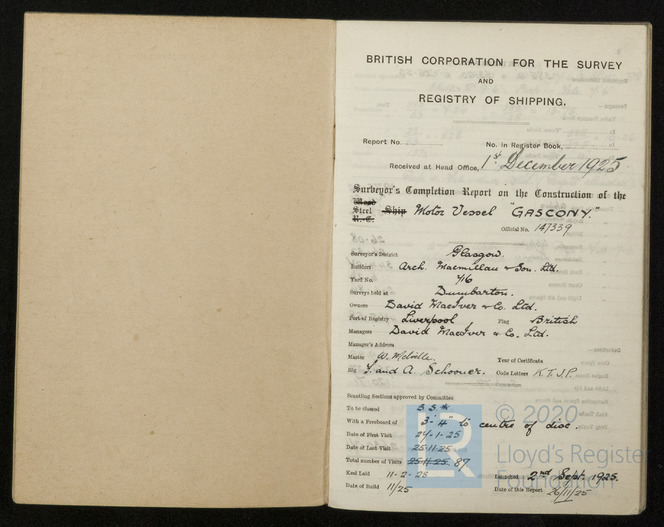 BRITISH CORPORATION FOR THE SURVEY
AND
REGISTRY OF SHIPPING.
Report No. No. in Register Book,
Received at Head Office, 1st December 1925
Surveyor's Completion Report on the Construction of the
Wood
Steel Ship Motor Vessel "GASCONY."
R.-C.
Official No. 147339
Surveyor's District Glasgow.
Builders Arch. Macmillan & Son. Ltd.
Yard No. 716
Surveys held at Dumbarton.
Owners David MacIver & Co. Ltd.
Port of Registry Liverpool Flag British
Managers David MacIver & Co. Ltd.
Manager's Address
Master W. Melville. Year of Certificate
Rig F. and A. Schooner. Code Letters K.T.J.P.
Scantling Sections approved by Committee
To be classed B S *
With a Freeboard of 3'-4" to centre of disc.
Date of First Visit 24-1-25
Date of Last Visit 25-11-25
Total number of Visits 25-11-25. 87
Keel Laid 11-2-25 Launched 2nd Sept. 1925.
Date of Build 11/25 Date of this Report 26/11/25
© 2020
Lloyd's Register
Foundation
LR